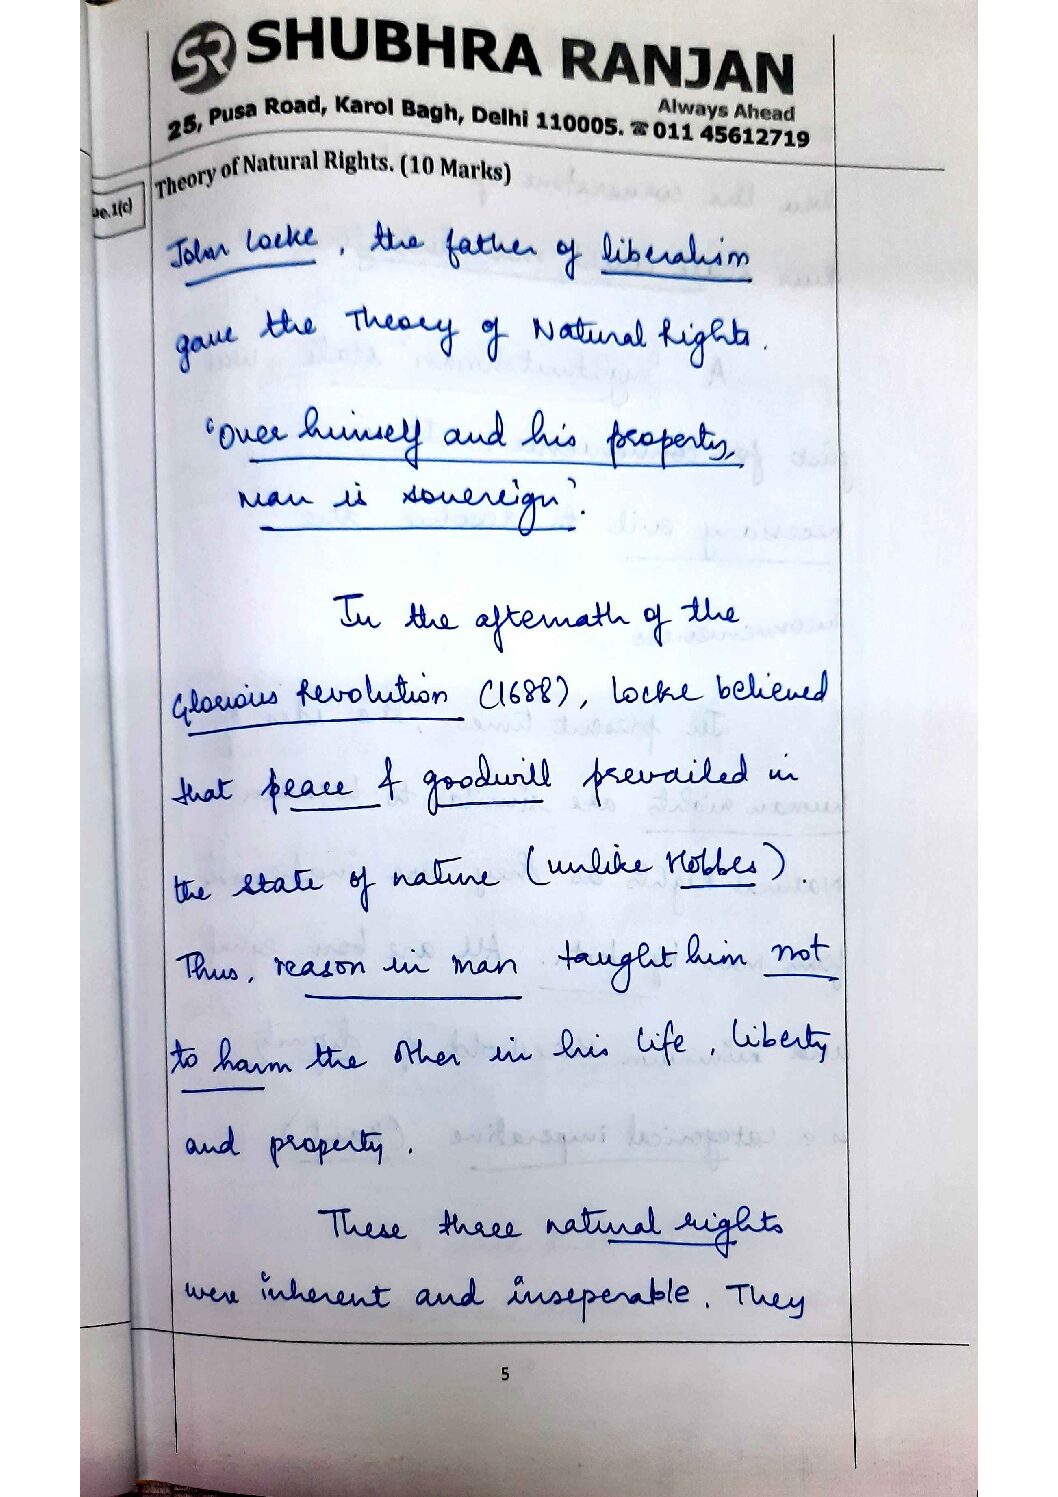 SR SHUBHRA RANJAN
Always Ahead
25, Pusa Road, Karol Bagh, Delhi 110005. ☎ 011 45612719
Theory of Natural Rights. (10 Marks)
ue.1(c)
John Locke, the father of liberalism
gave the Theory of Natural Rights.
'Over himself and his property,
man is sovereign'.
In the aftermath of the
Glorious Revolution (1688), Locke believed
that peace & goodwill prevailed in
the state of nature (unlike Hobbes).
Thus, reason in man taught him not
to harm the other in his life, liberty
and property.
These three natural rights
were inherent and inseperable. They
5